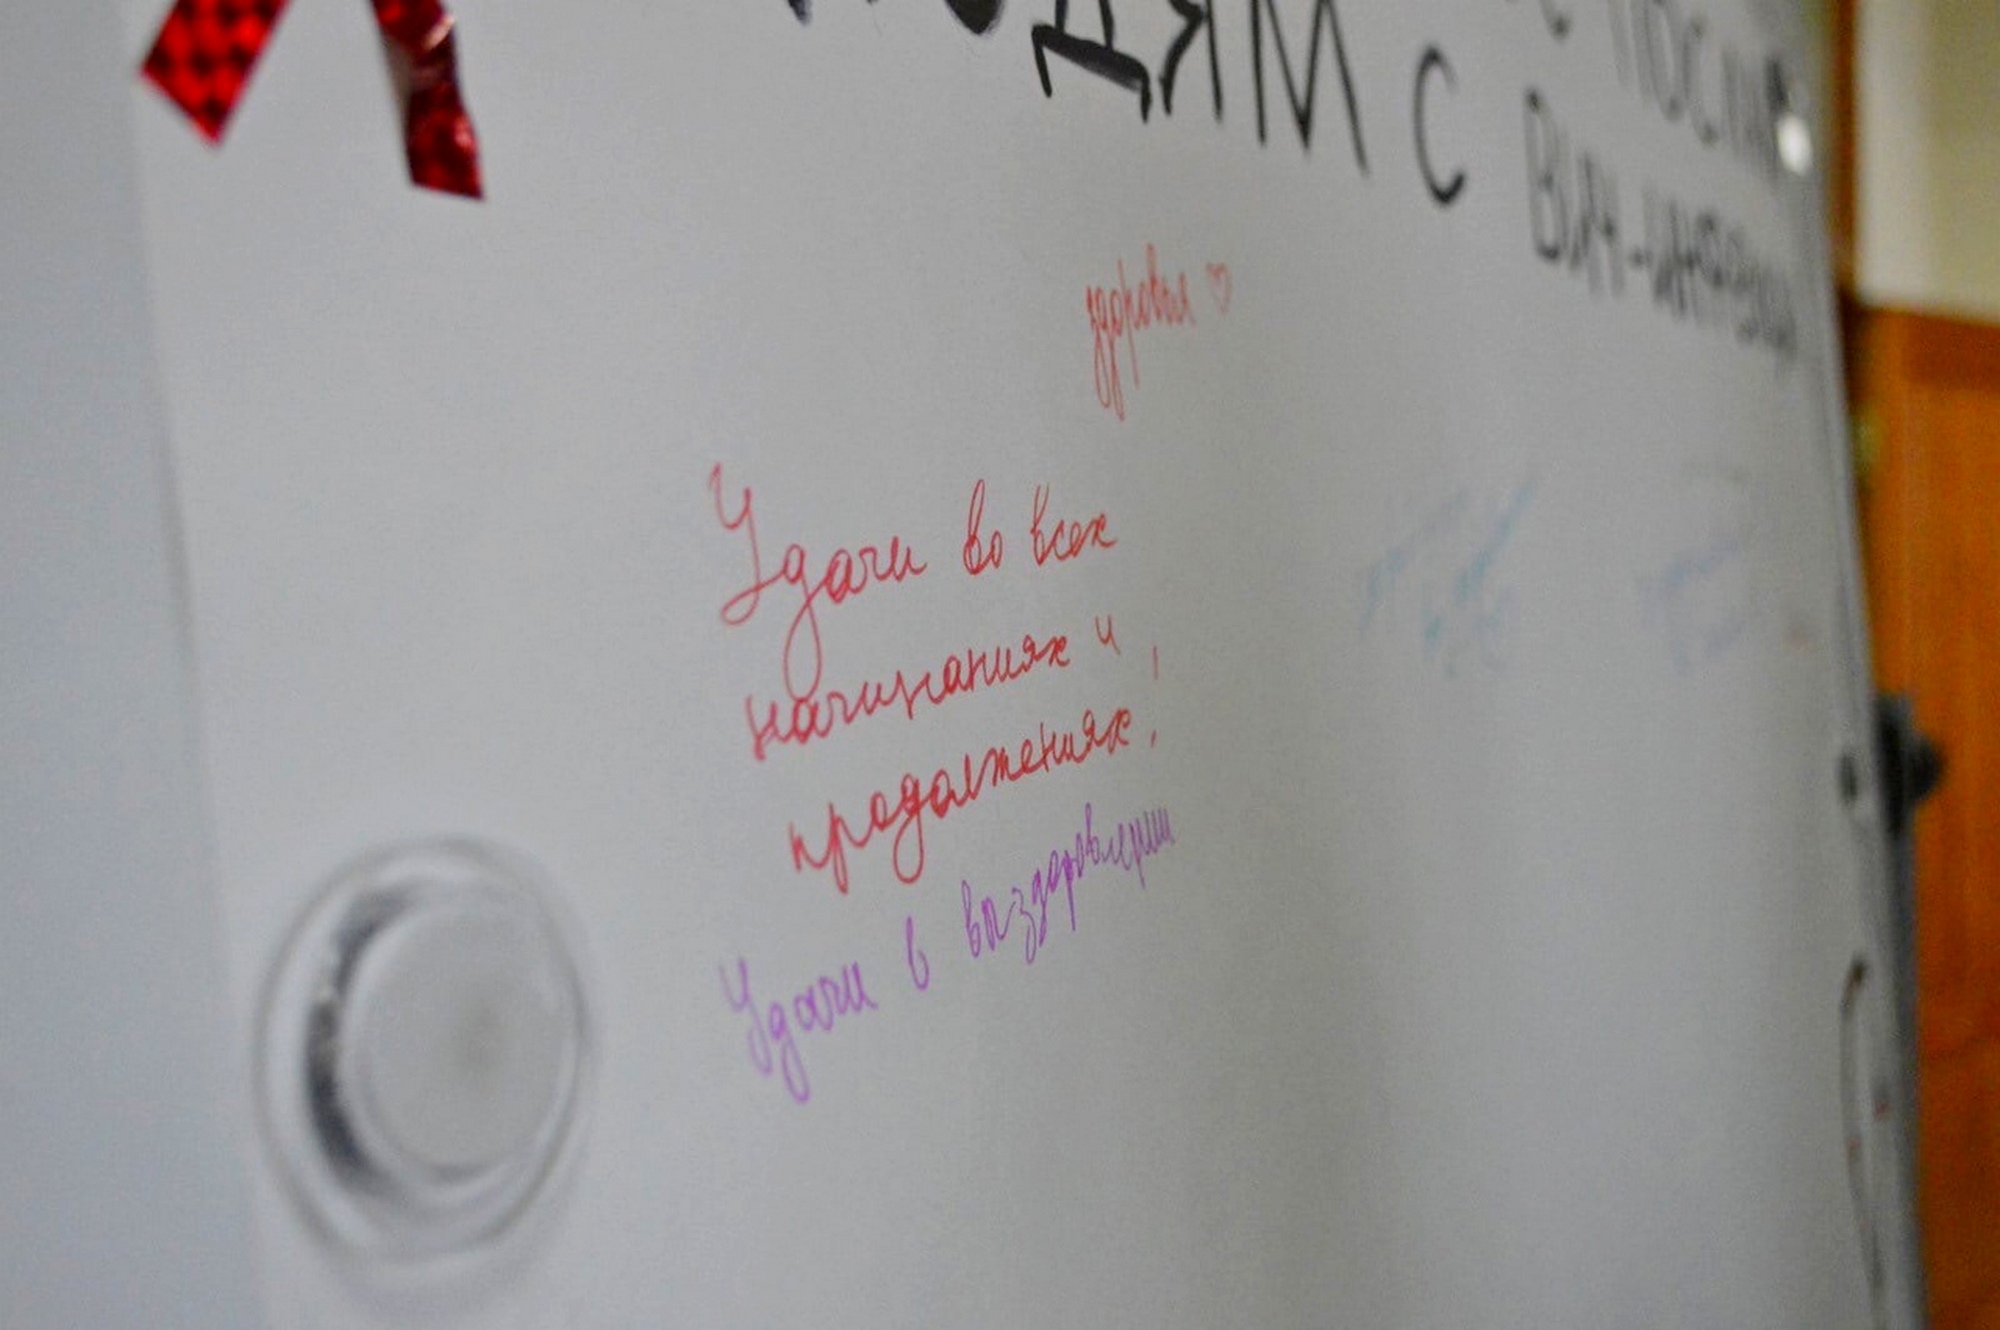 людям с
ВИЧ-инфекц
здоровья ♡
Удачи во всех
начинаниях и
продолжениях!
Удачи в выздоровлении